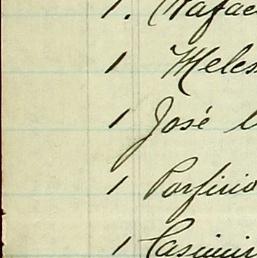 1. Rafae
1 Meles
1 José
1 Porfirio
1 Casimir